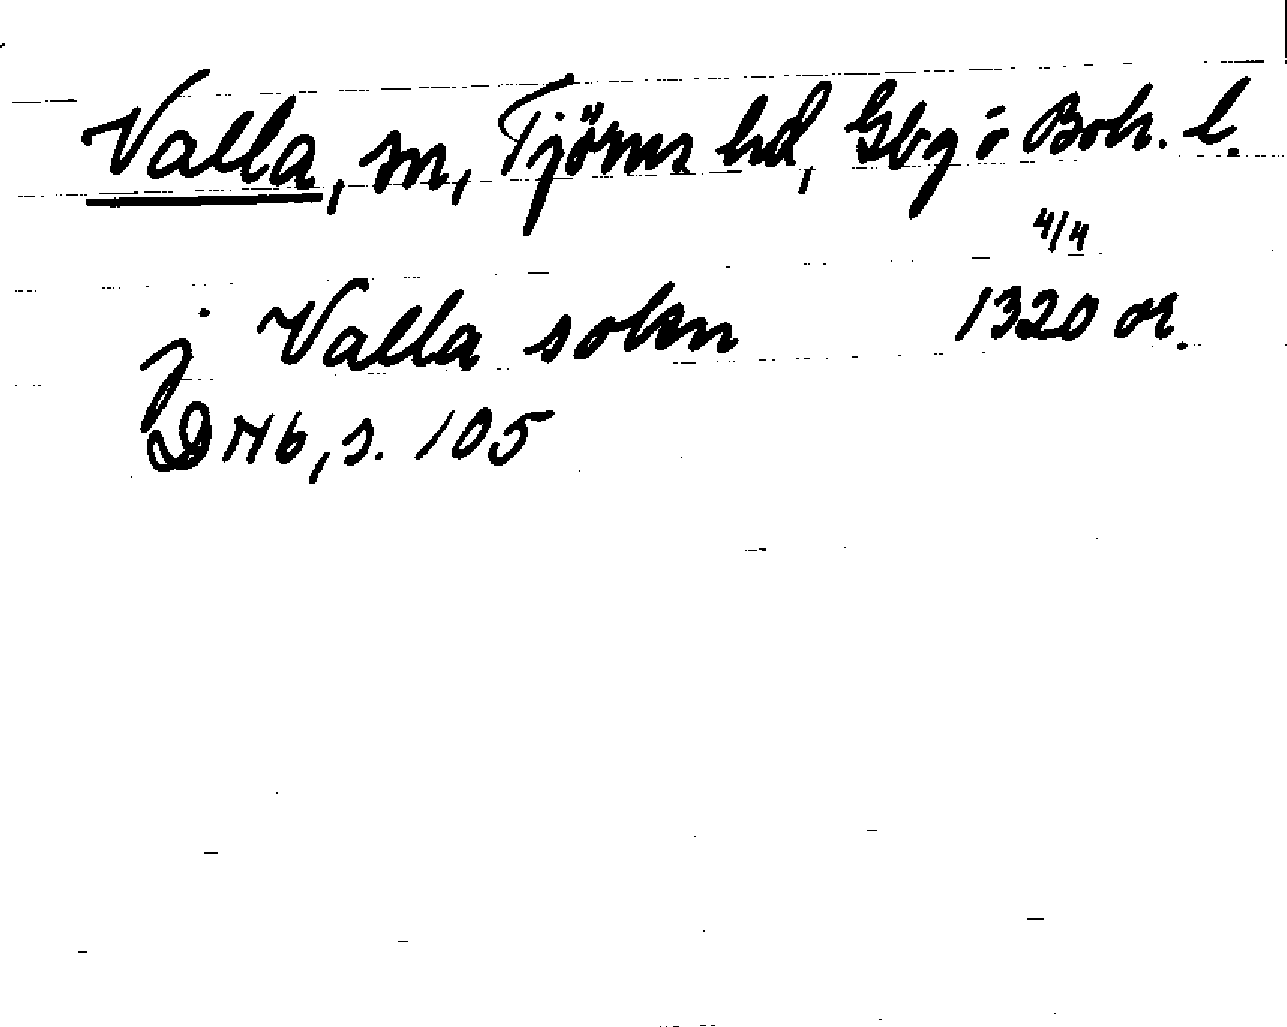 Valla, sn, Tjörns hd, Gbg o Boh. l.
4/4
j Valla sokn 1320 or.
DN 6, s. 105